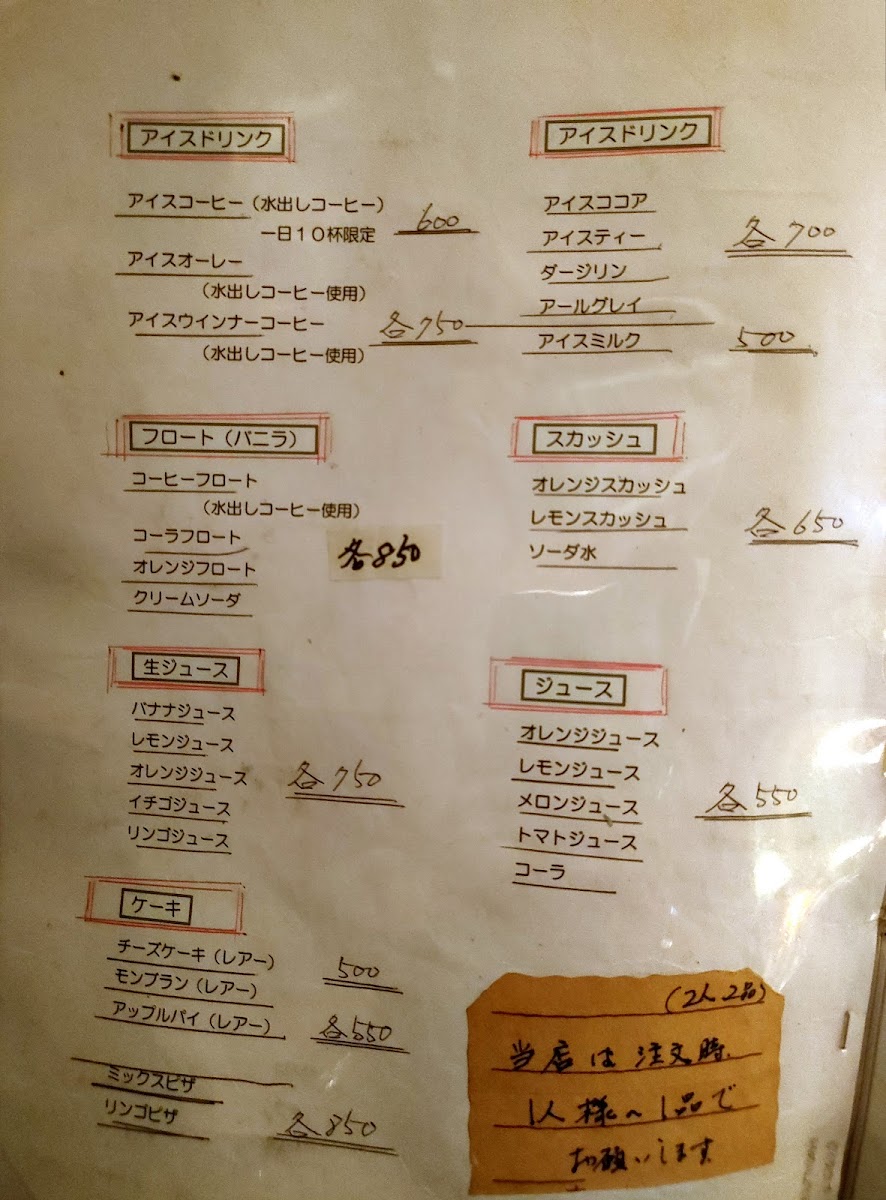 アイスドリンク
アイスコーヒー（水出しコーヒー）
一日１０杯限定 600
アイスオーレー
（水出しコーヒー使用）
アイスウインナーコーヒー 各750
（水出しコーヒー使用）
アイスドリンク
アイスココア
アイスティー 各700
ダージリン
アールグレイ
アイスミルク 500
フロート（バニラ）
コーヒーフロート
（水出しコーヒー使用）
コーラフロート 各850
オレンジフロート
クリームソーダ
スカッシュ
オレンジスカッシュ
レモンスカッシュ 各650
ソーダ水
生ジュース
バナナジュース
レモンジュース
オレンジジュース 各750
イチゴジュース
リンゴジュース
ジュース
オレンジジュース
レモンジュース
メロンジュース 各550
トマトジュース
コーラ
ケーキ
チーズケーキ（レアー） 500
モンブラン（レアー）
アップルパイ（レアー） 各550
ミックスピザ
リンゴピザ 各850
（2人2品）
当店は注文時、
1人様へ1品で
お願いします